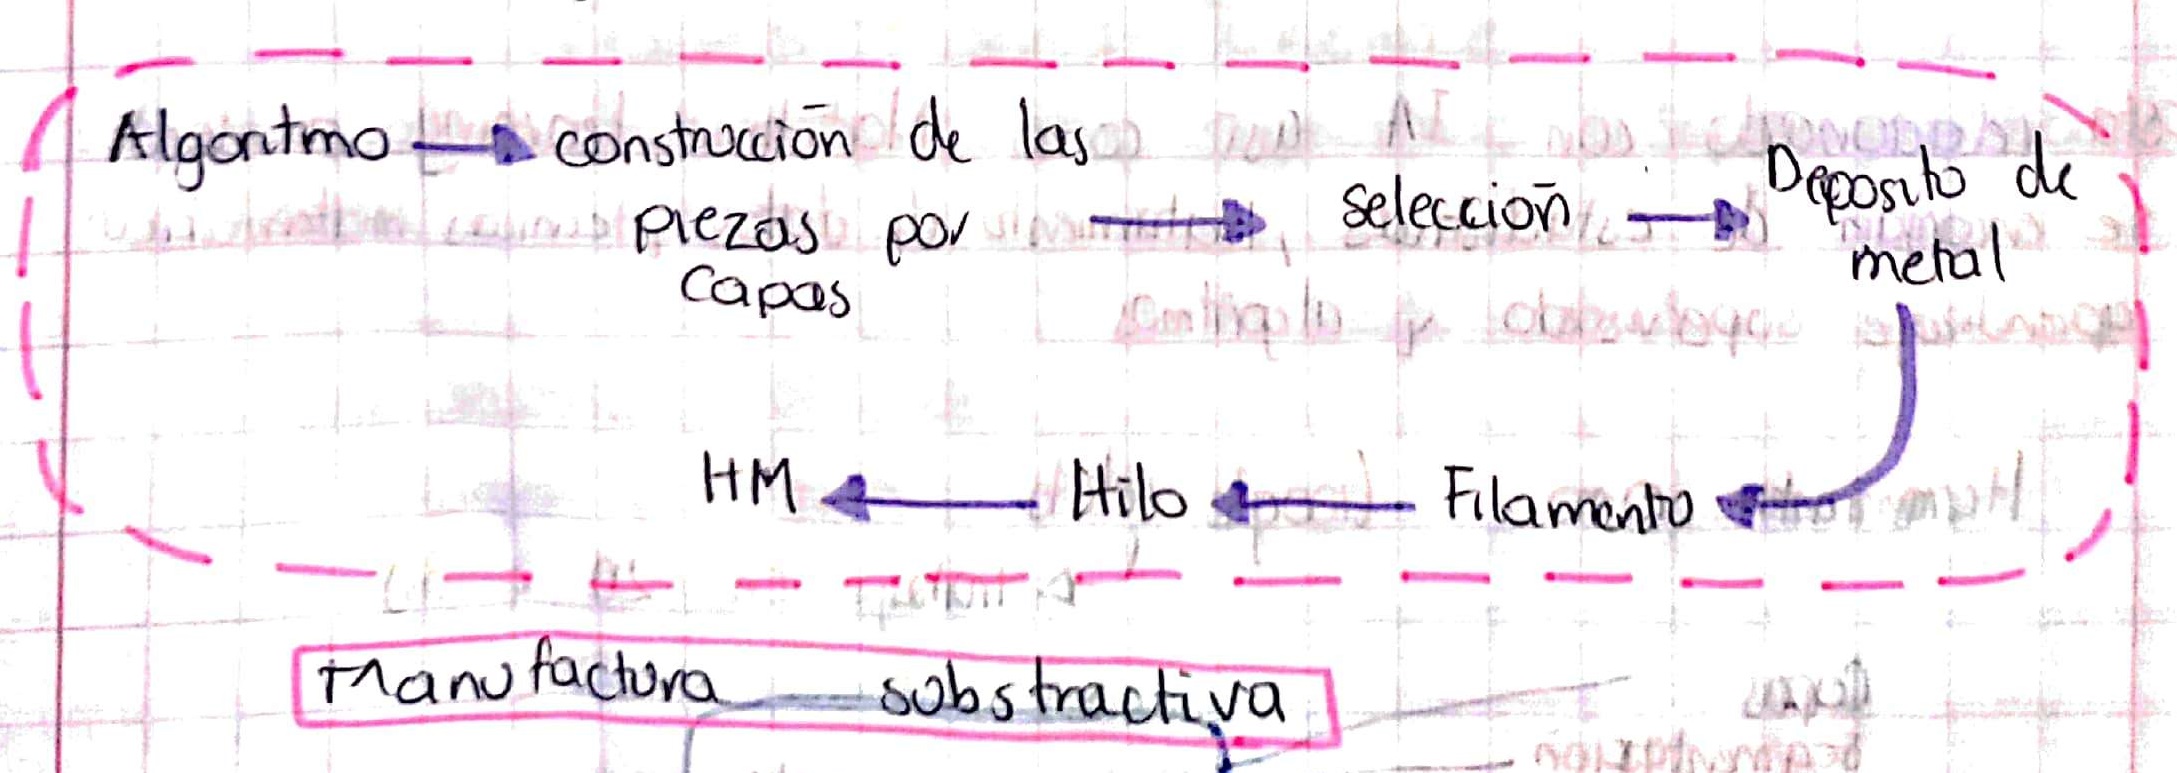 Algoritmo → construcción de las
piezas por → selección → Deposito de
capas metal
HM ← Hilo ← Filamento
Manufactura substractiva